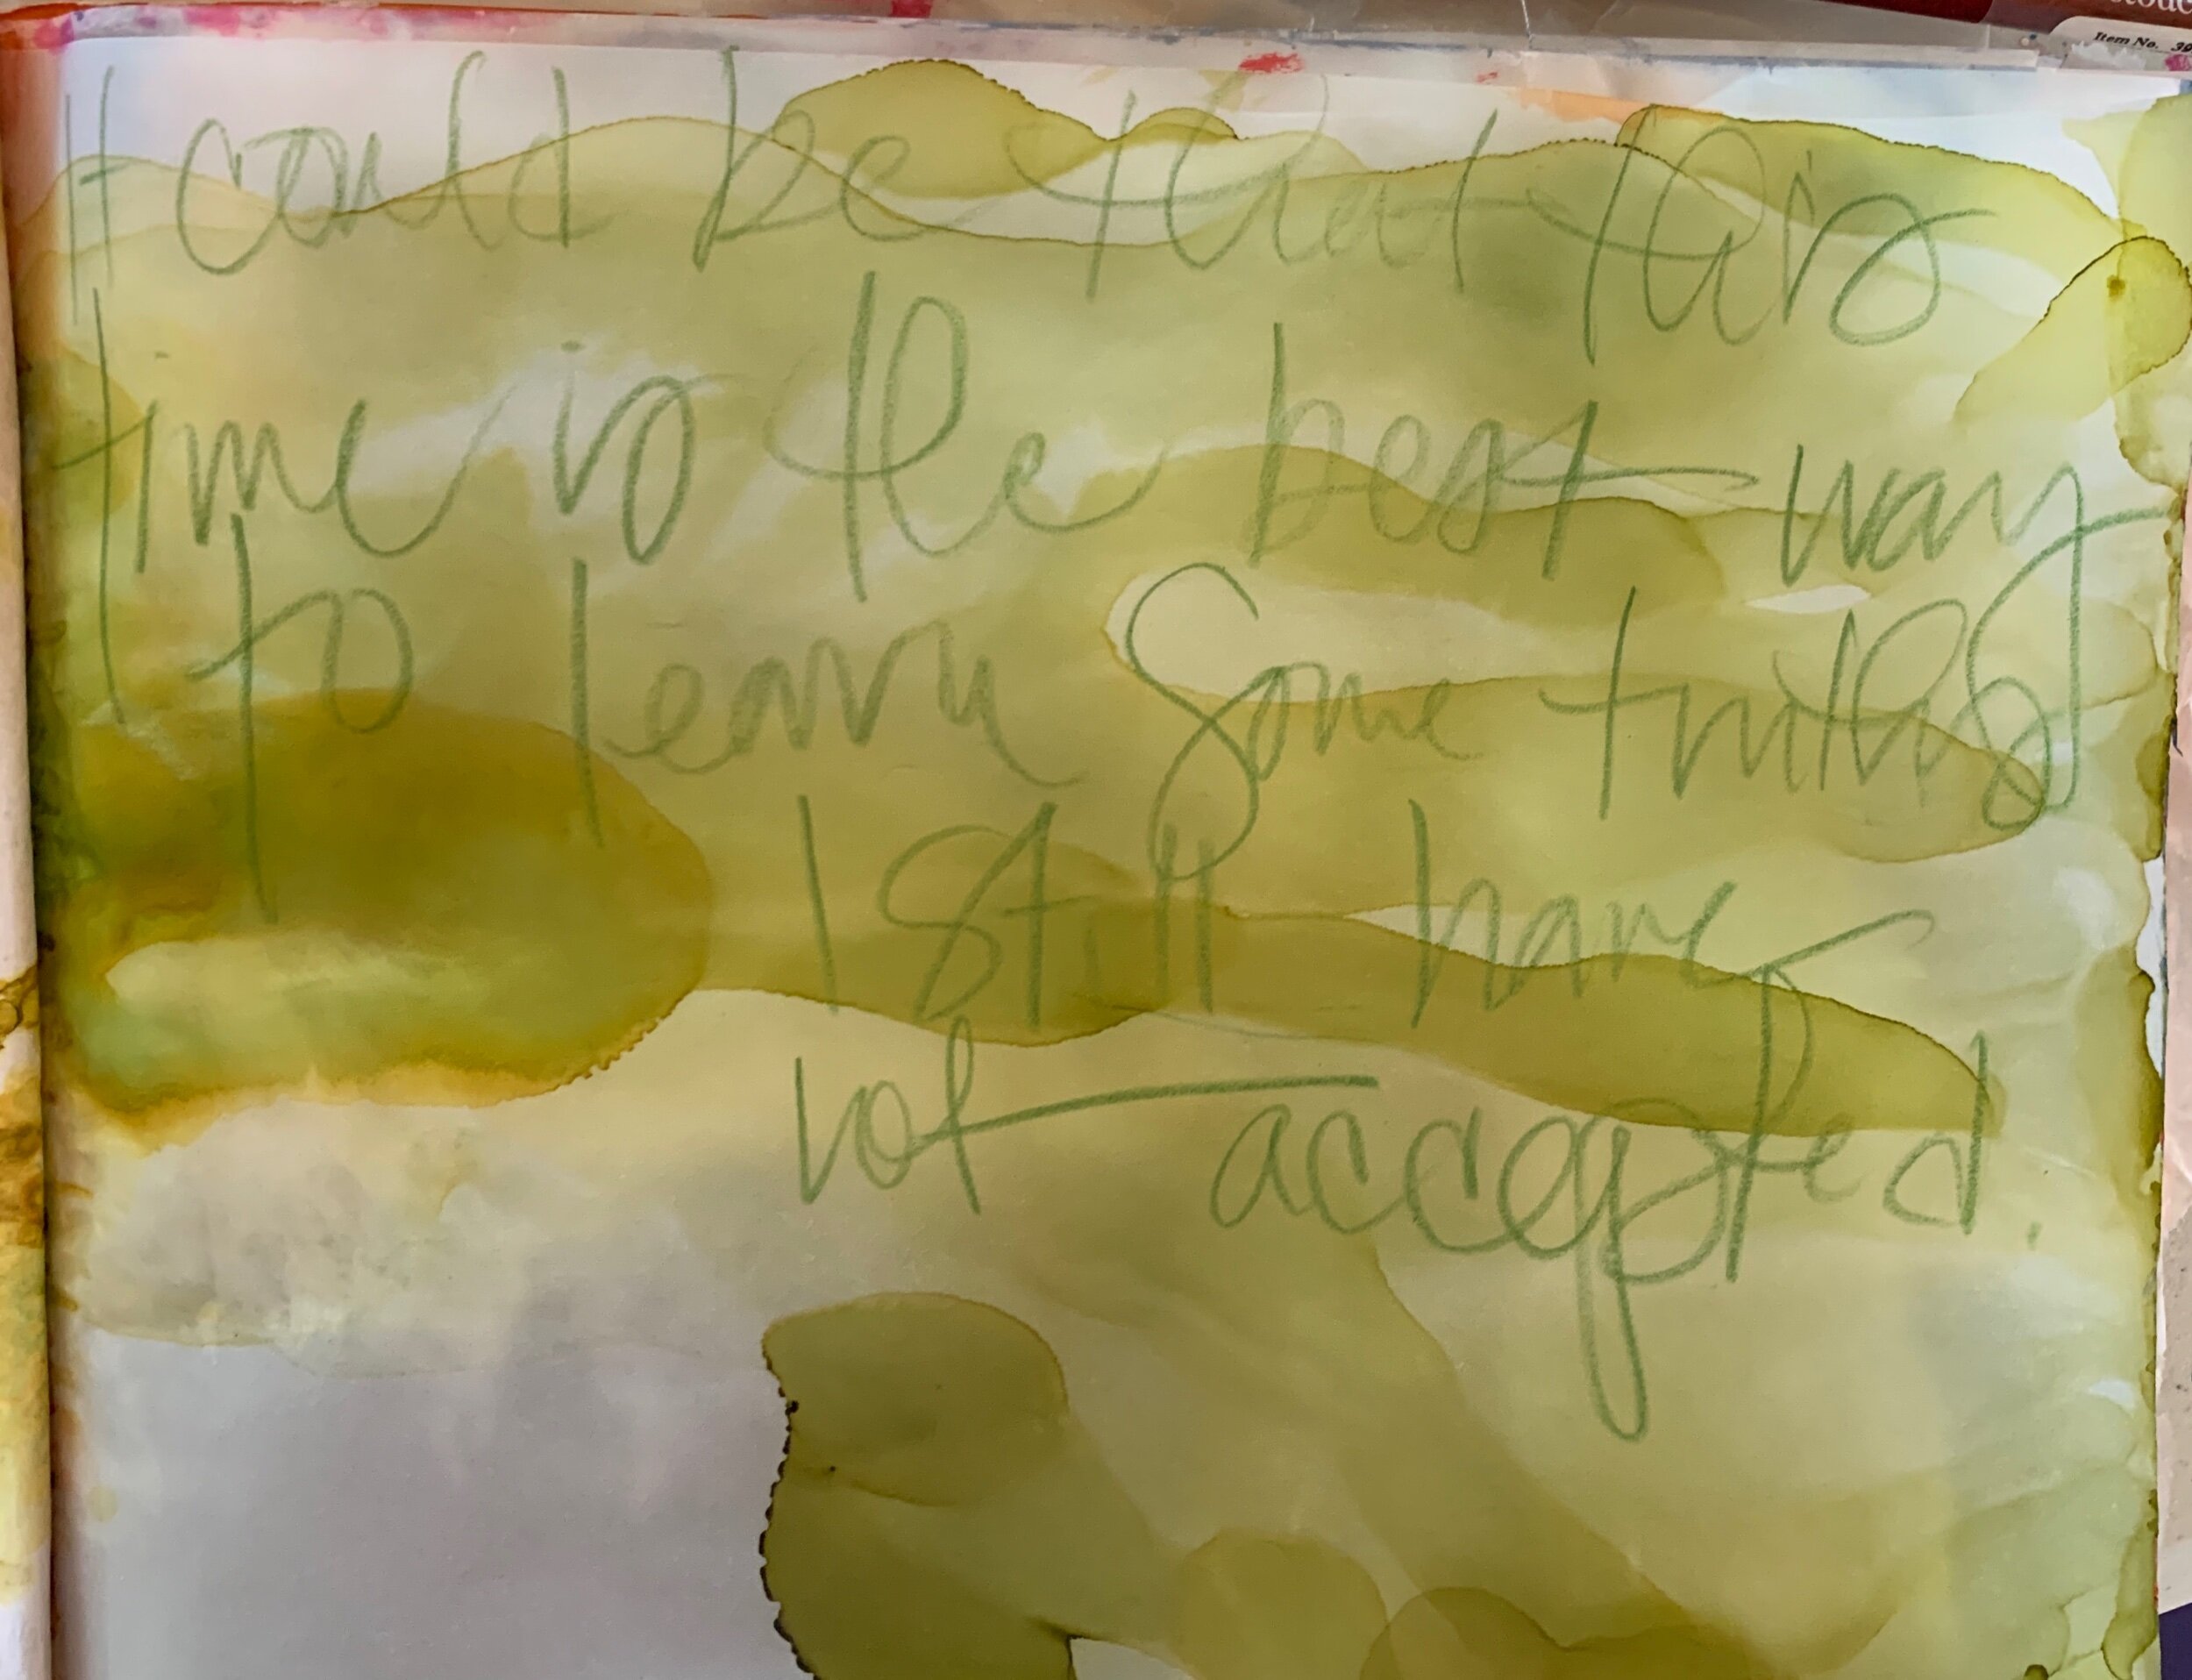 It could be that this
time is the best way
to learn some truths
I still have
not accepted.
Item No. 39